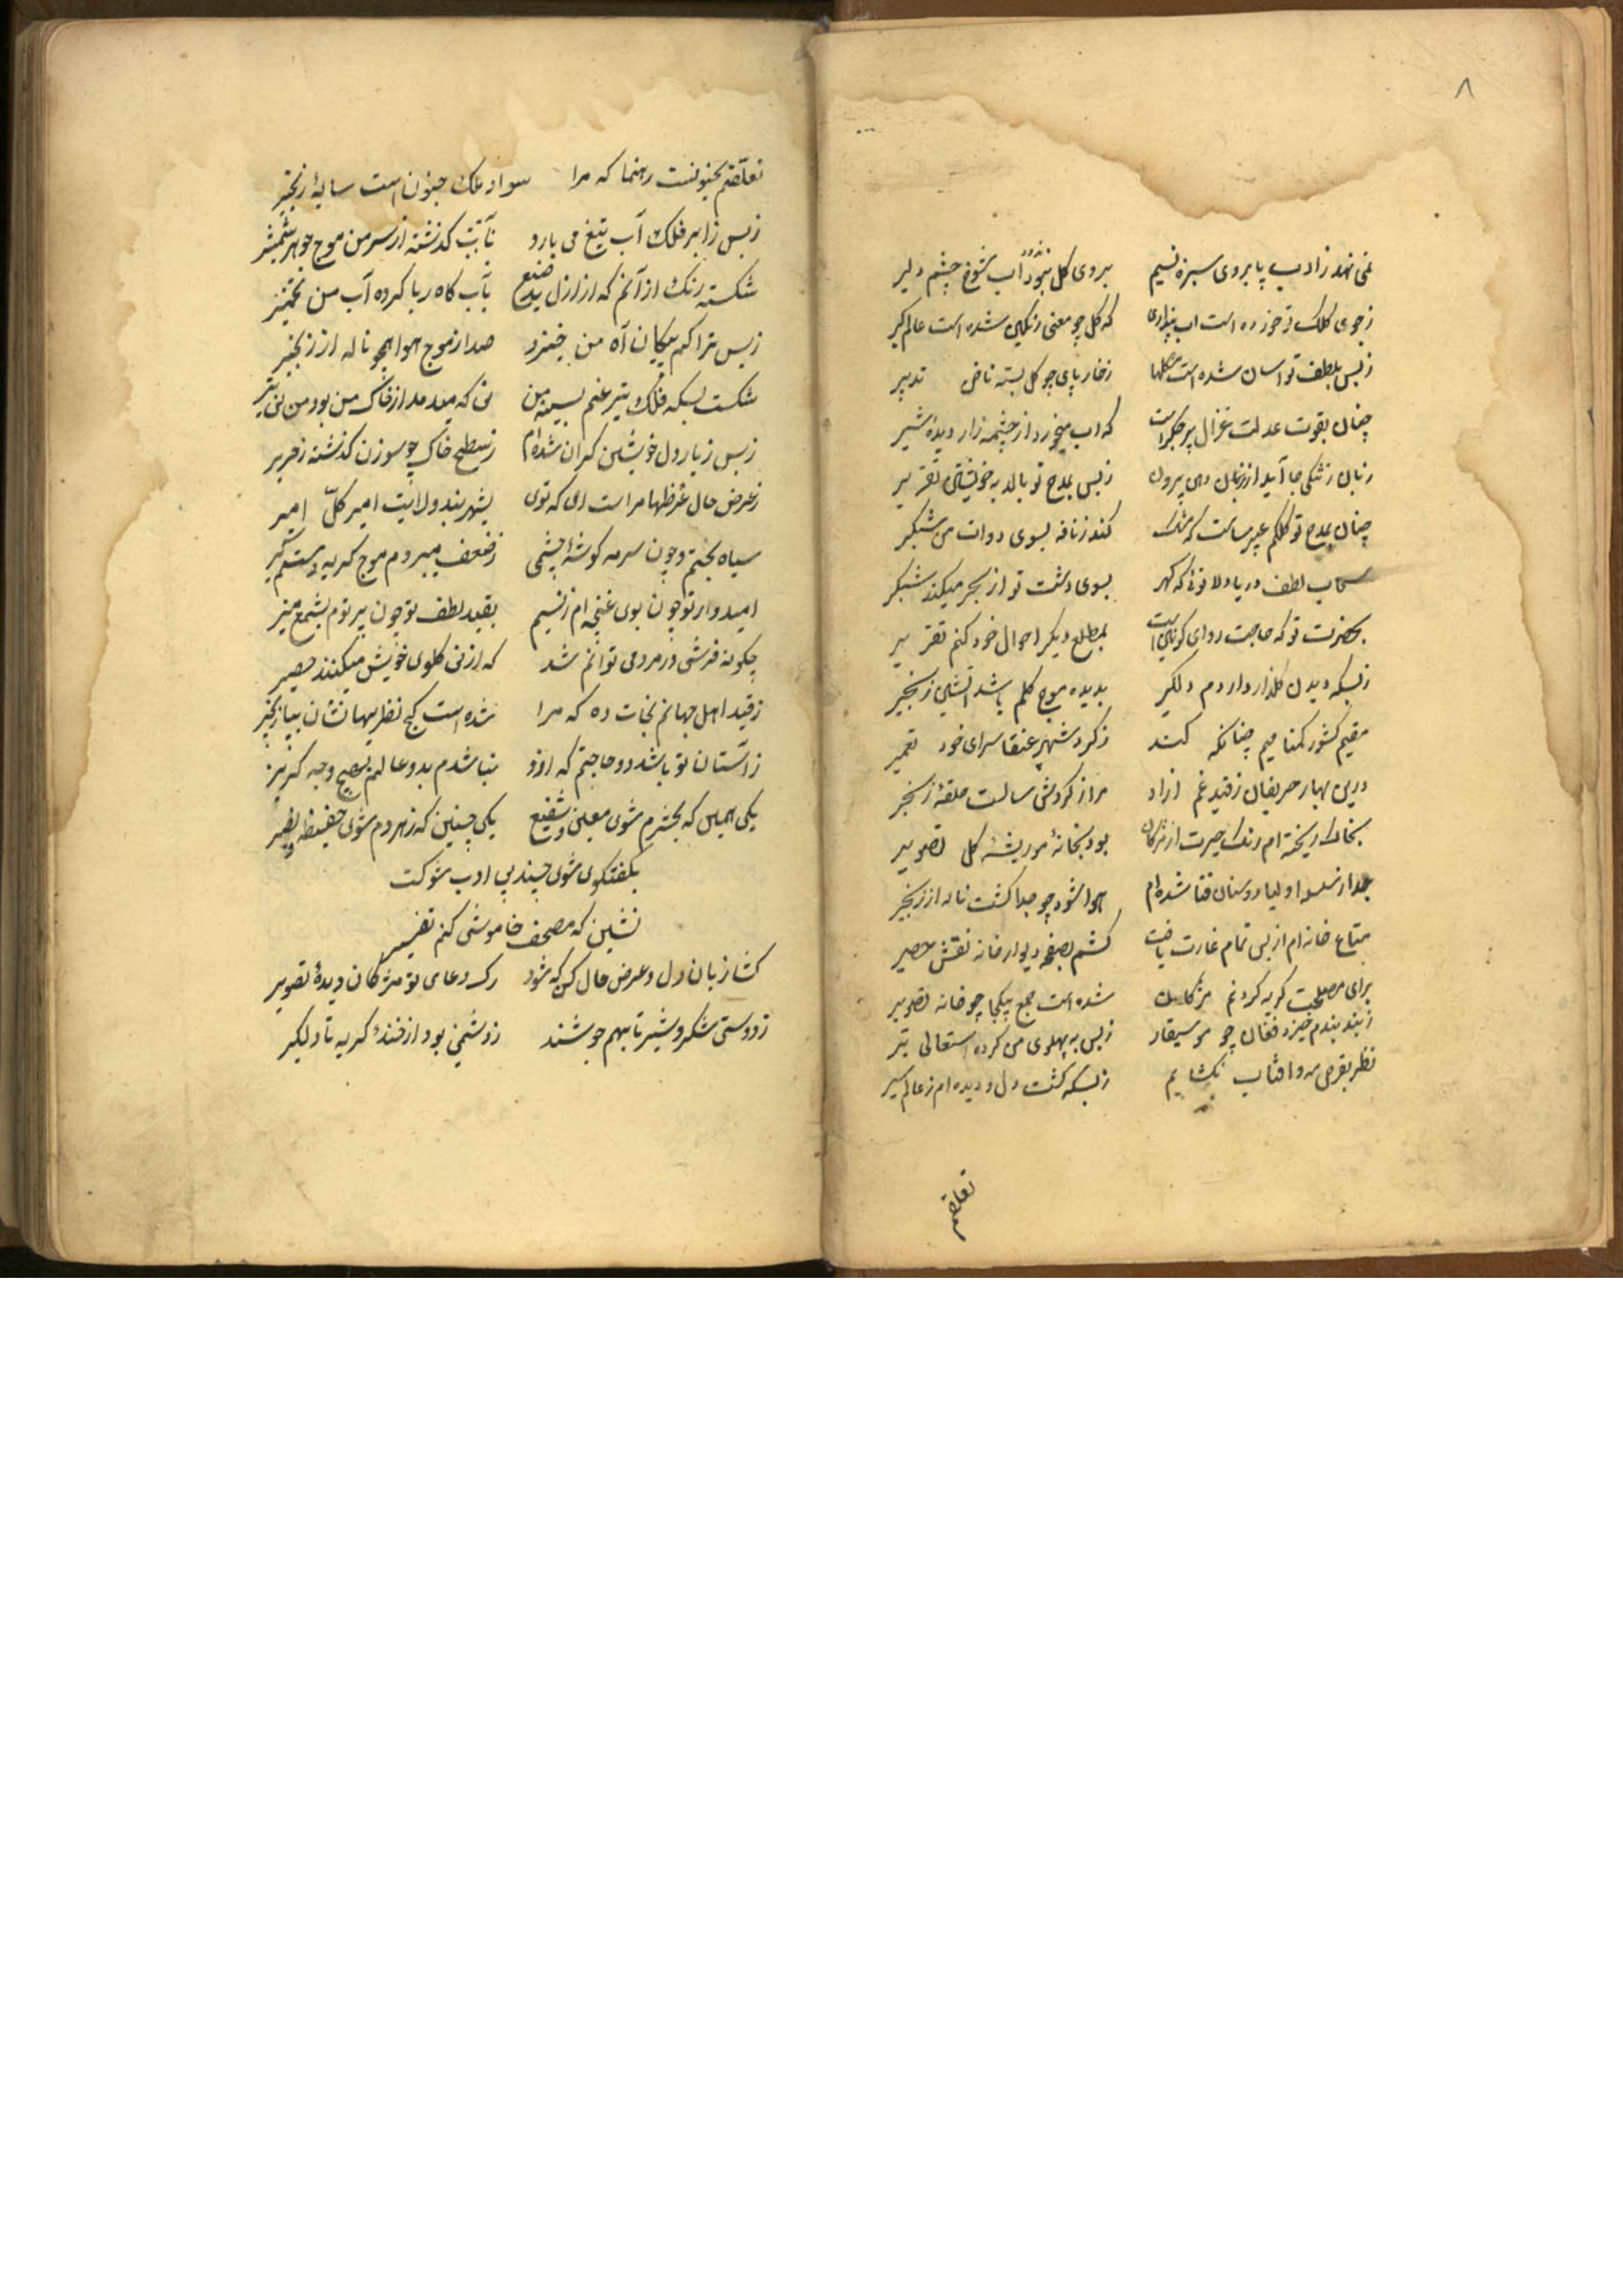 ۸
نمی نهد ز ادب پا بروی سبزه نسیم بروی گل نبود آب شوخ چشم دلیر
ز جوی کلک تو خورده است آب پنداری که گل چو معنی رنگین شده است عالم گیر
ز بس بلطف تو آسان شده است مشکلها ز خار پای چو گل بسته ناخن تدبیر
چنان بقوت عدلت غزال پر جگر است که آب میخورد از چشمه زار دیدهٔ شیر
زبان ز تنگی جا آید از دهان بیرون ز بس بمدح تو بالد به خویشتن تقریر
چنان بمدح تو کلکم عبیرساست که مشک کند ز نافه بسوی دوات من شبگیر
سحاب لطف دریا دلا توئی که گهر بسوی دشت تو از بحر میکند شبگیر
بحضرت تو که حاجت روای کونین است بمطلع دیگر احوال خود کنم تقریر
ز بسکه دیدن گلزار دارم دلگیر بدیده موج گلم باشد آتشین زنجیر
مقیم کشور گمنامیم چنانکه کند ز گرد شهپر عنقا سرای خود تعمیر
درین بهار حریفان ز قید غم آزاد مرا ز گردش سالست حلقهٔ زنجیر
بخاک ریخته ام رنگ حیرت از مژگان بود بخانهٔ مو ریشهٔ گل تصویر
جدا ز سلسله اولیا دوستان فنا شده ام هوا شود چو جدا گشت ناله از زنجیر
متاع خانه ام از بس تمام غارت یافت کشم بصفحه دیوار خانه نقش حصیر
برای مصلحت گریه کردنم مژگان شده است جمع بیکجا چو خانه تصویر
ز بند بندم خیزد فغان چو موسیقار ز بس به پهلوی من کرده استعالی تیر
نظر بقرص مه و آفتاب نگشایم ز بسکه گشت دل و دیده ام ز عالم سیر
تعلقم
تعلقم بجنونست رهنما که مرا سواد ملک جنون است سایهٔ زنجیر
ز بس ز ابر فلک آب تیغ می بارد ثابت گذشته از سر من موج جوهر شمشیر
شکسته رنگ از آنم که از ازل صنع بآب کاه ربا کرده آب من تخمیر
ز بس تراکم پیکان آه من خیزد صدا ز موج هوا همچو ناله از زنجیر
شکست بسکه فلک تیر غم بسینه من نی که میدمد از خاک من بود من نی تیر
ز بس ز بار دل خویشتن گران شده ام ز سطح خاک چو سوزن گذشته ز حریر
ز عرض حال غرضها مراست ای که توی بشهربند ولایت امیر کل امیر
سیاه بختم و چون سرمه گوشهٔ چشمی ز ضعف میبردم موج گریه دستم گیر
امیدوار تو چون بوی غنچه ام ز نسیم بقید لطف تو چون پرتوم بشمع منیر
چگونه فرش در مردمی توانم شد که از نی گلوی خویش میکند حصیر
ز قید اهل جهانم نجات ده که مرا شده است کج نظریها نشان بیا زنجیر
ز آستان تو باشد دو حاجتم که از او نباشدم بدو عالم بهیچ وجه گریز
یکی همین که بحشرم شوی معین و شفیع یکی چنین که ز هر دم شوی حفیظ و نصیر
بگفتگوی شوی چند بی ادب شوکت
نشین که مصحف خاموشی کنم تفسیر
گشا زبان دل و عرض حال کن که شود رگ دعای تو مژگان دیدهٔ تصویر
ز دوستی شکر و شیر تا بهم جوشند ز دشمنی بود از خندهٔ گریه تا دلگیر